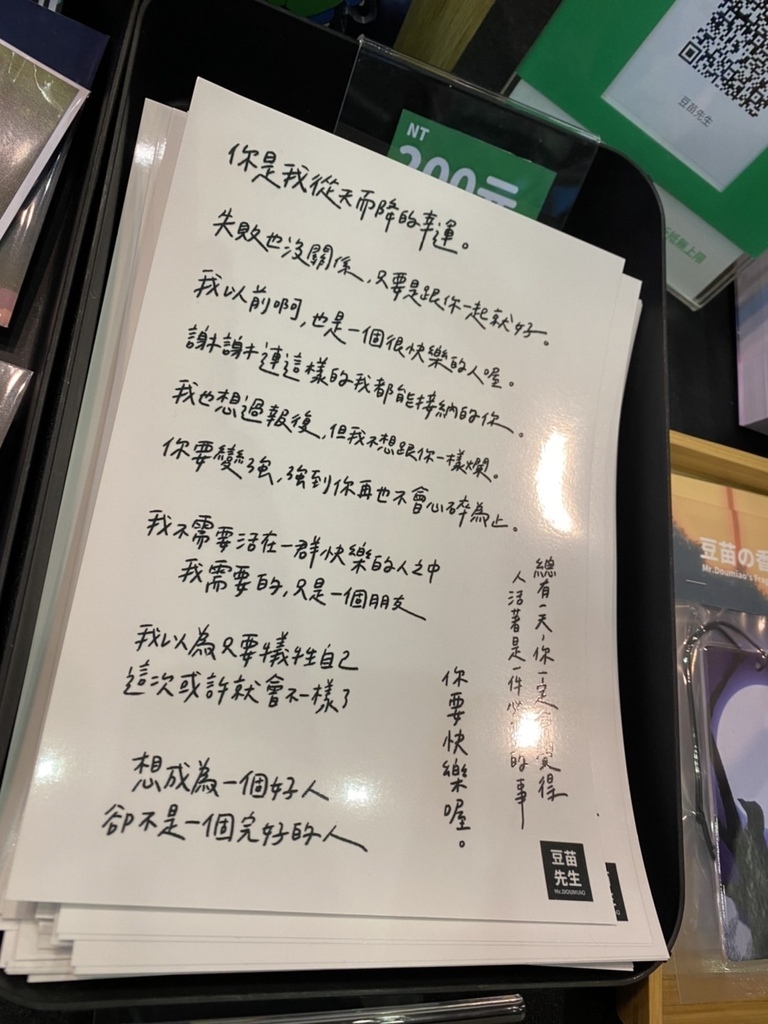 你是我從天而降的幸運。
失敗也沒關係,只要是跟你一起就好。
我以前啊,也是一個很快樂的人喔。
謝謝連這樣的我都能接納的你。
我也想過報復,但我不想跟你一樣爛。
你要變強,強到你再也不會心碎為止。
我不需要活在一群快樂的人之中
我需要的,只是一個朋友
我以為只要犧牲自己
這次或許就會不一樣了
想成為一個好人
卻不是一個完好的人
總有一天,你一定會覺得
人活著是一件 的事
你要快樂喔。
豆苗
先生
Mr.DOUMIAO
NT
200元
豆苗先生
豆苗の香
Mr.Doumiao's